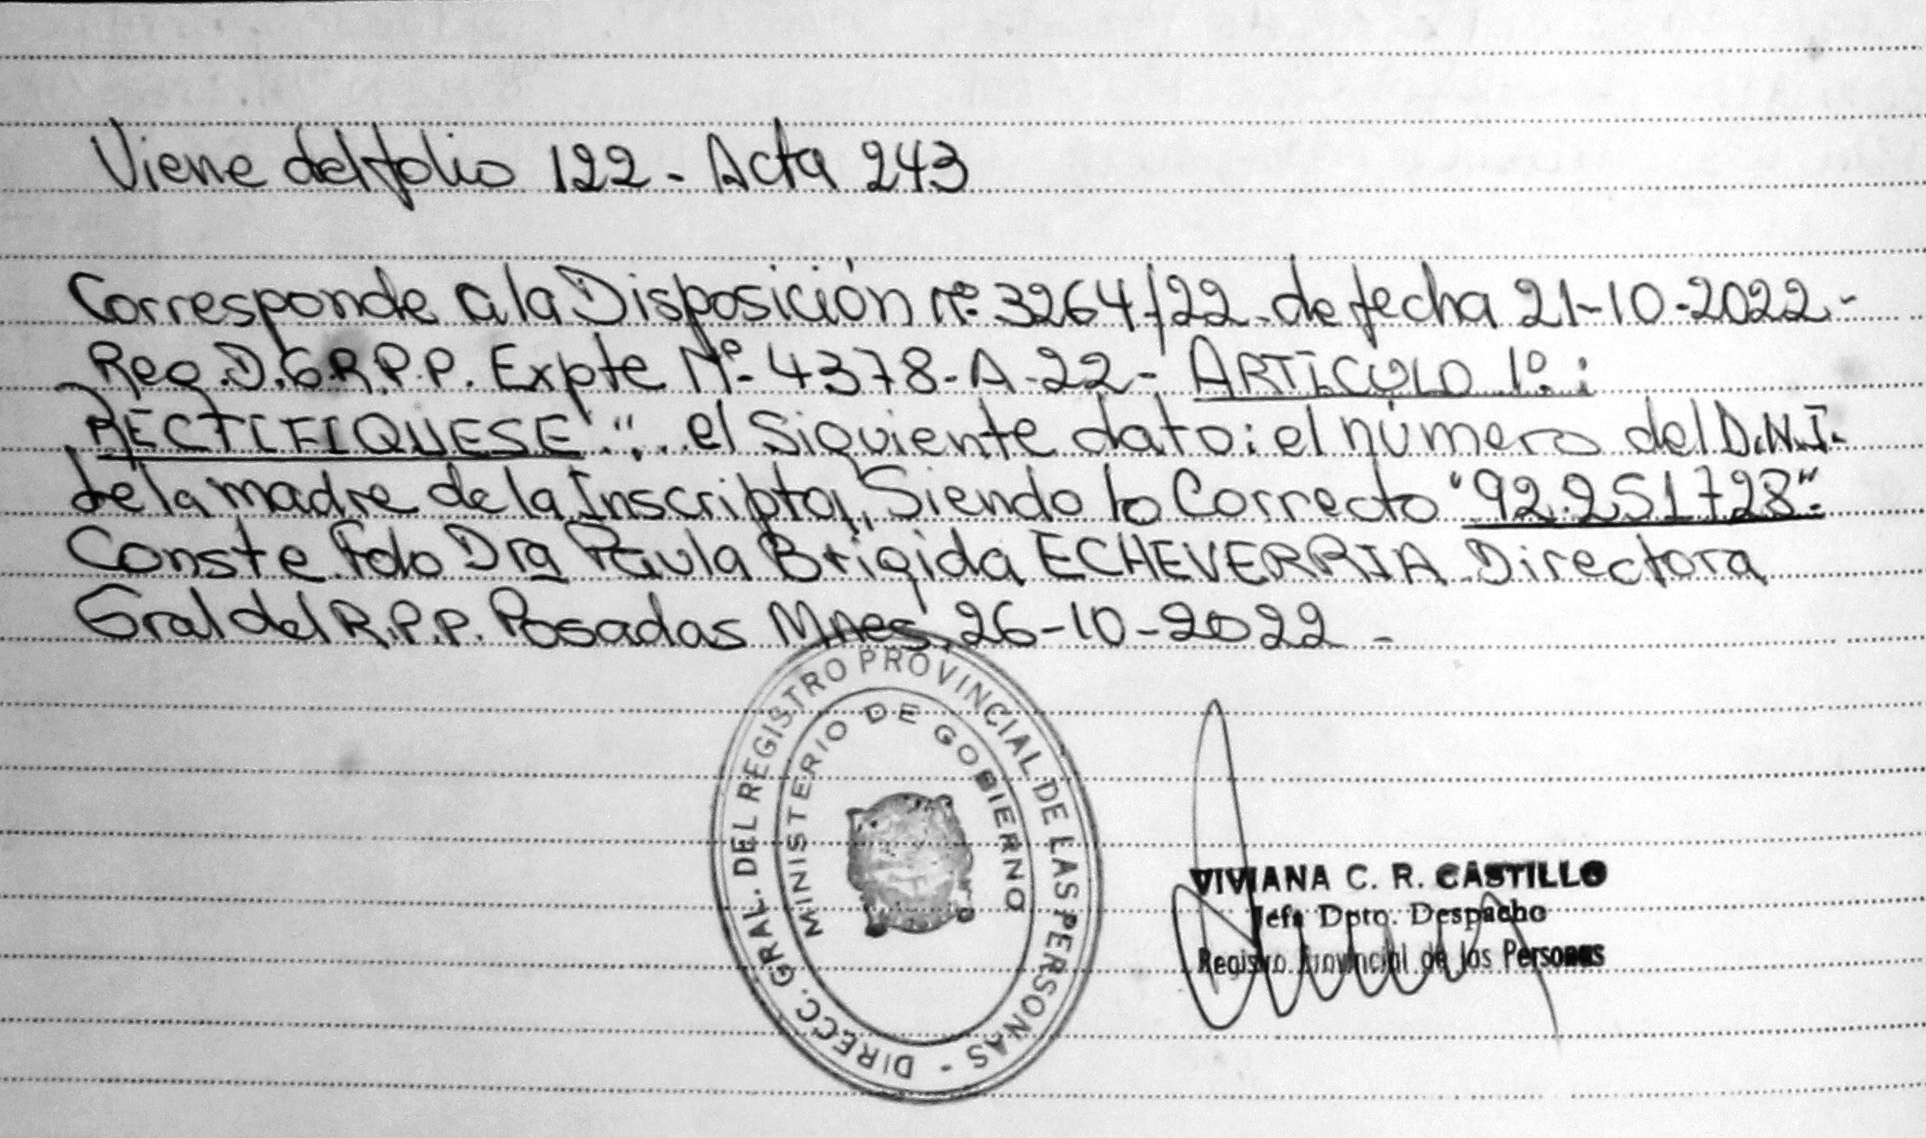 Viene del folio 122 - Acta 243
Corresponde a la Disposición nº 3264/22 de fecha 21-10-2022-
Reg. D.G.R.P.P. Expte Nº 4378-A-22- ARTÍCULO 1º:
RECTIFIQUESE "... el Siguiente dato: el número del D.N.I.
de la madre de la Inscripta, Siendo lo Correcto "92.251728".
Conste. Fdo Dra Paula Brigida ECHEVERRIA Directora
Gral del R.P.P. Posadas Mnes, 26-10-2022 -
DIRECC. GRAL. DEL REGISTRO PROVINCIAL DE LAS PERSONAS -
MINISTERIO DE GOBIERNO
VIVIANA C. R. CASTILLO
Jefa Dpto. Despacho
Registro Provincial de las Personas